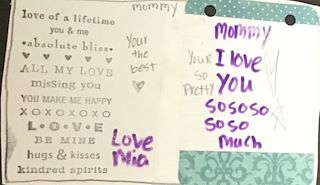 Mommy
love of a lifetime
you & me
•absolute bliss•
ALL MY LOVE
missing you
YOU MAKE ME HAPPY
XOXOXOXO
L•O•V•E
BE MINE
hugs & kisses
kindred spirits
Your
the
best
Love
Mia
Mommy
I love
You
sososo
soso
Much
Your
so
Pretty